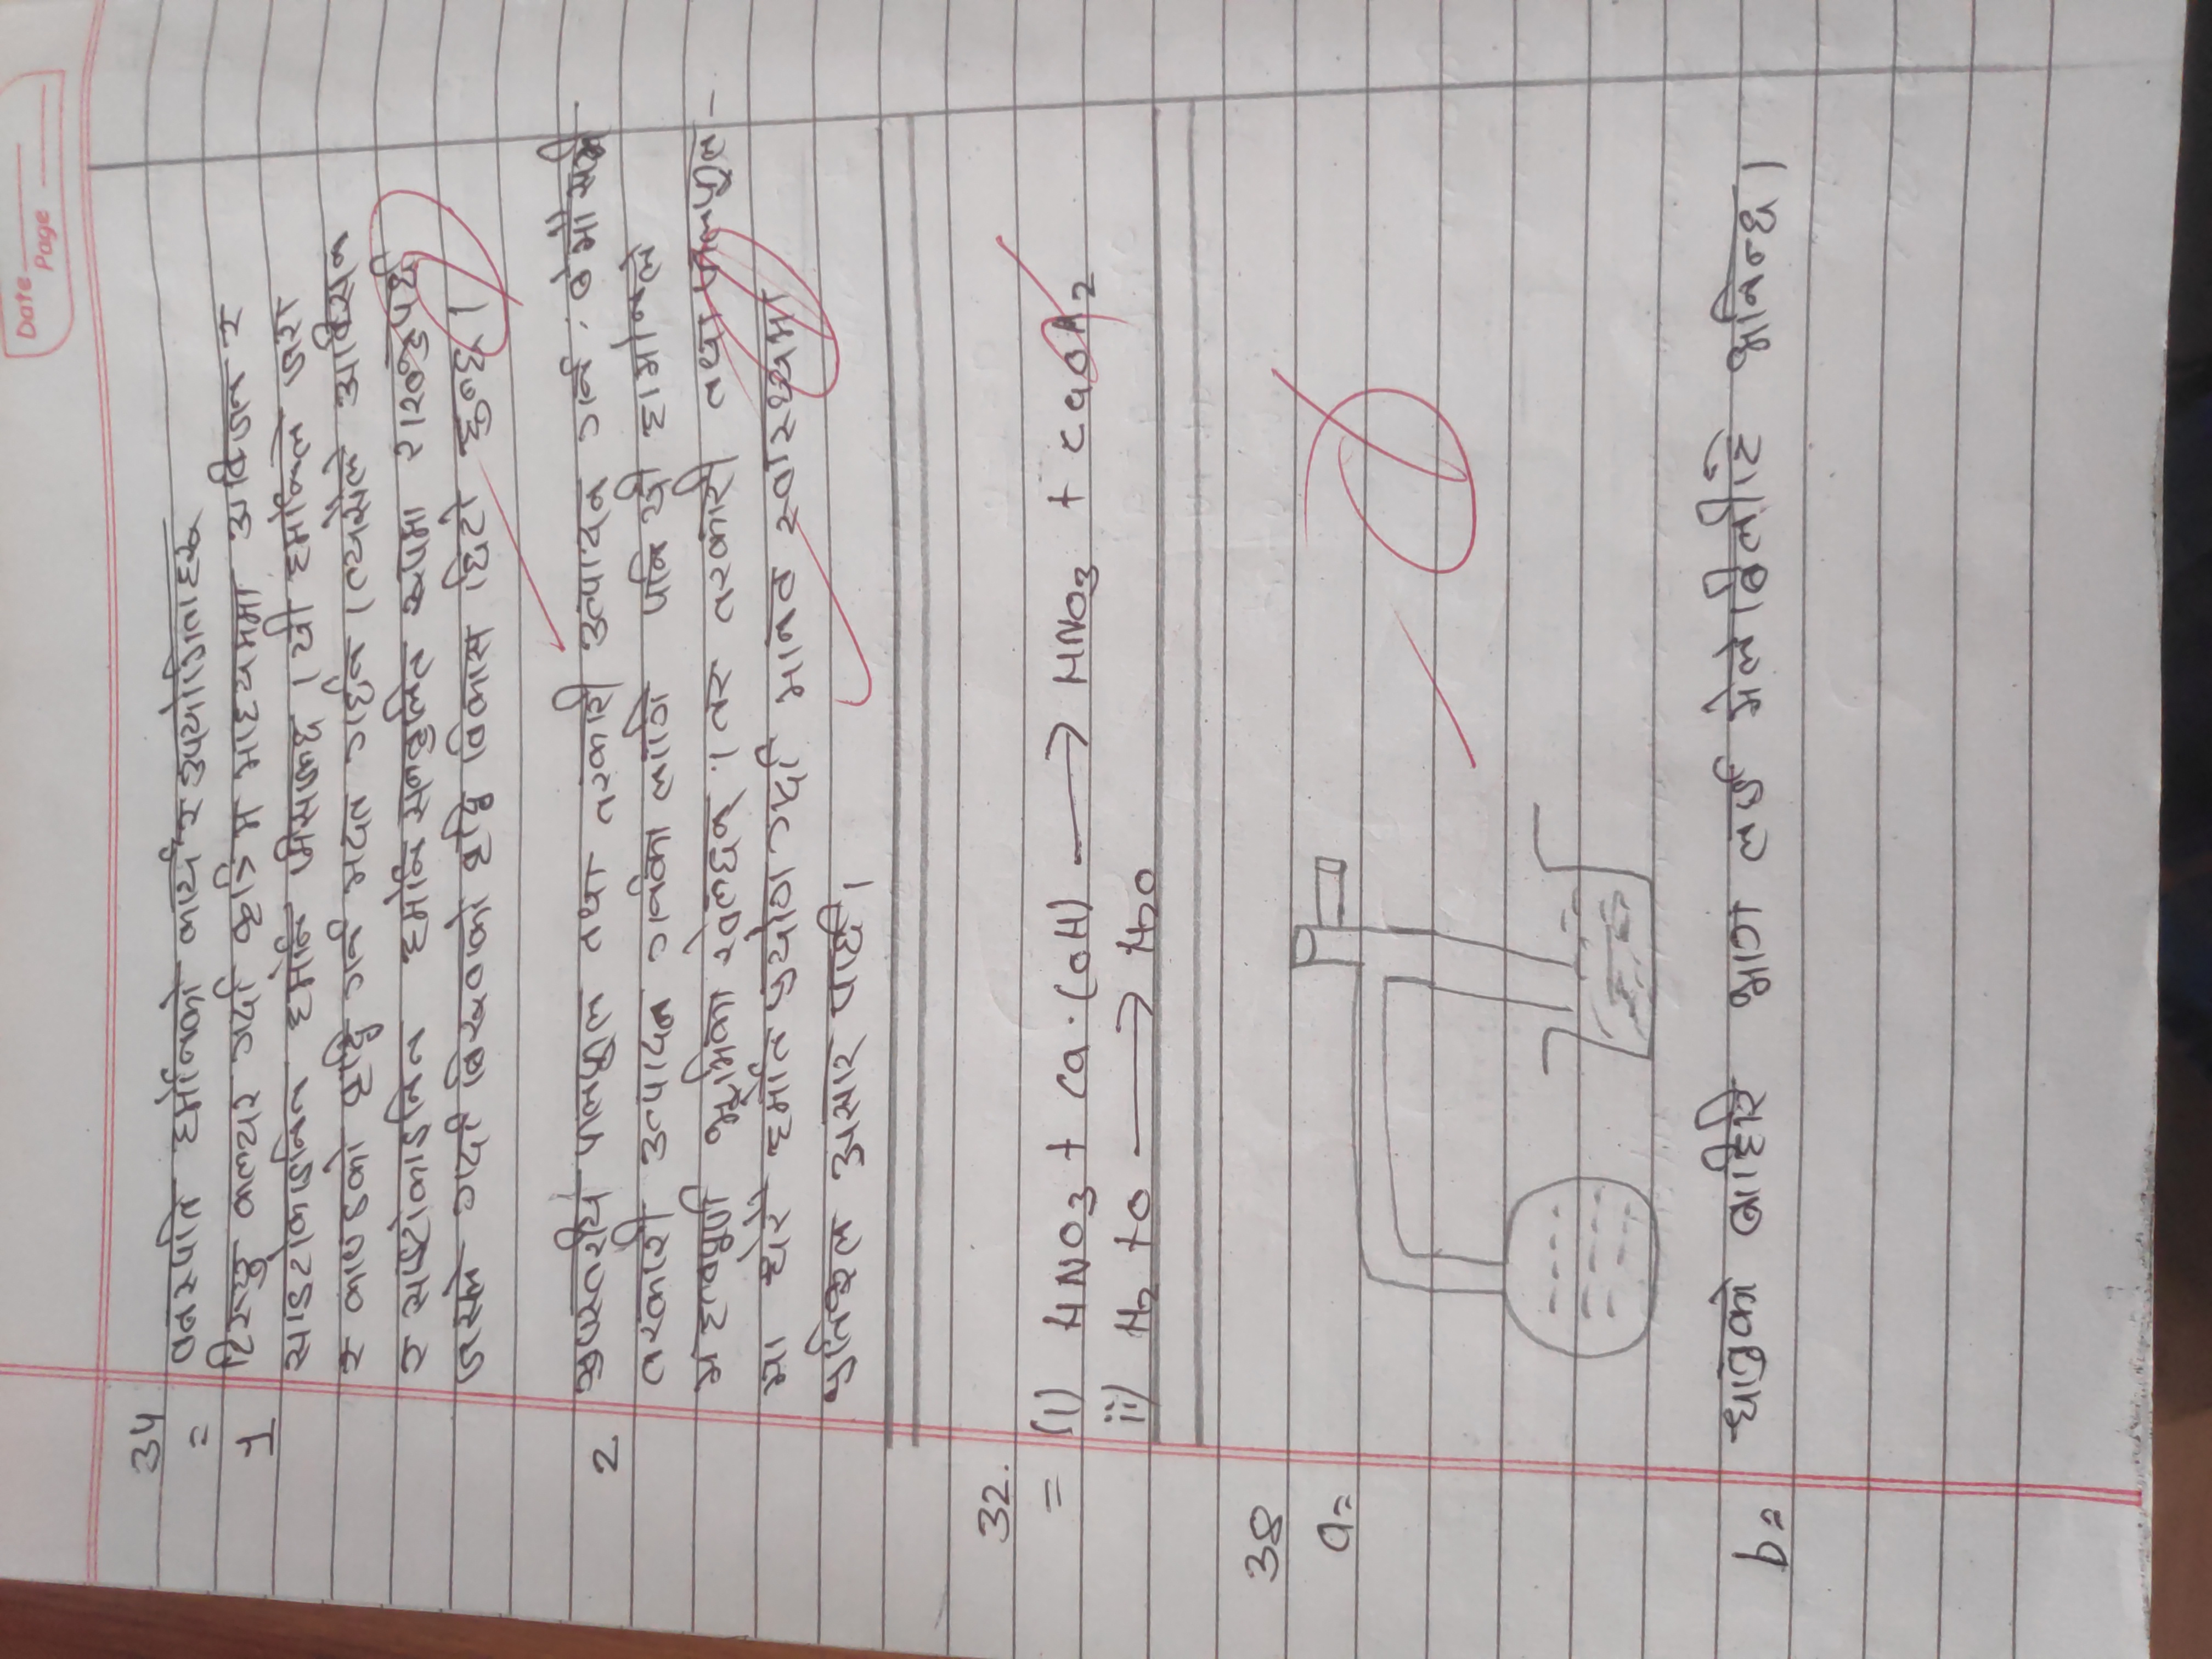 Date
Page
34
= वनस्पति हर्मोनको कार्य र उपयोगिताहरू
1 टिस्यु कल्चर गर्दा कृत्रिम माध्यममा अक्जिन र
साइटोकाइनिन हर्मोन मिसाइन्छ । यी हर्मोनले जरा
र काण्डको वृद्धि गर्न मदत गर्छन । त्यसैले अक्सिन
र साइटोकाइनिन हर्मोन सन्तुलित रूपमा राख्नुपर्छ
जसले गर्दा बिरूवाको वृद्धि विकास छिटो हुन्छ ।
2 गुणस्तरीय फलफूल तथा तरकारी उत्पादन गर्न, बेमौसमी
तरकारी उत्पादन गर्नका लागि पनि यी हार्मोनले
महत्वपूर्ण भूमिका खेल्छन् । तर तरकारी तथा फलफूल-
मा धेरै हर्मोन प्रयोग गर्दा मानव स्वास्थ्यमा
प्रतिकूल असार पार्छ ।
32.
= (i) HNO3 + Ca.(OH) ⟶ HNO3 + CaOH2
ii) H2 + O ⟶ H2O
38
a=
b= धातुको बाहिरि भाग लाई मेलेबिलीटि भनिन्छ ।